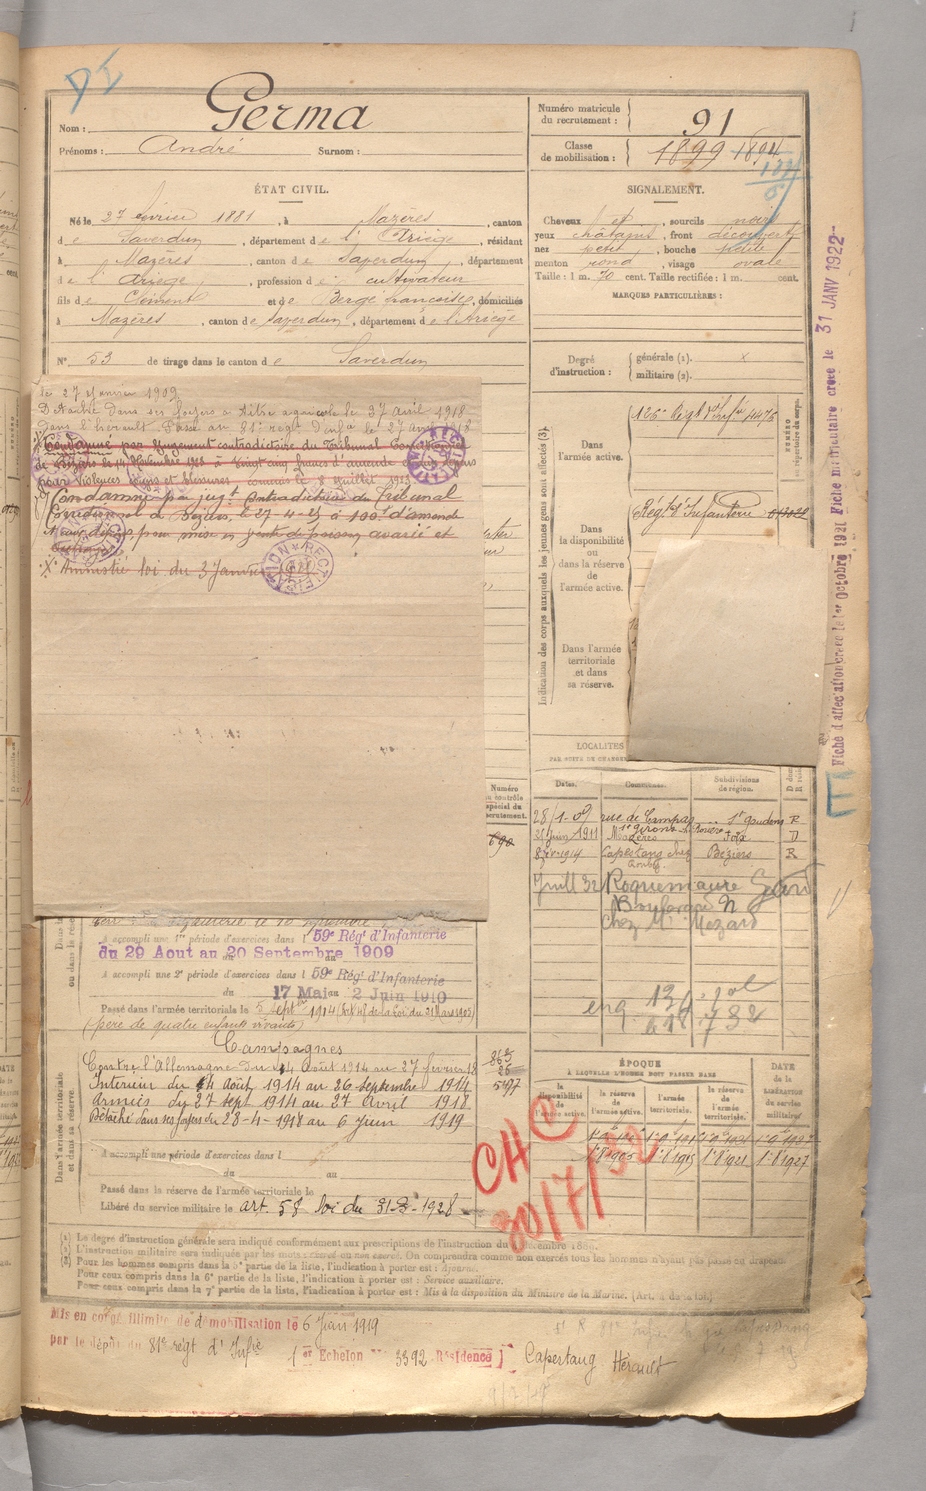 Nom : Germa
Prénoms : André Surnom :
Numéro matricule
du recrutement : 91
Classe
de mobilisation : 1899 1894
ÉTAT CIVIL.
Né le 27 février 1881, à Mazères, canton
de Saverdun, département de l'Ariège, résidant
à Mazères, canton de Saverdun, département
de l'Ariège, profession de cultivateur
fils de Clément et de Berge françoise, domiciliés
à Mazères, canton de Saverdun, département de l'Ariège
N° 53 de tirage dans le canton de Saverdun
SIGNALEMENT.
Cheveux et, sourcils noirs
yeux chatains, front découvert
nez petit, bouche petite
menton rond, visage ovale
Taille : 1 m. 70 cent. Taille rectifiée : 1 m. cent.
MARQUES PARTICULIÈRES :
Degré
d'instruction : générale (1). x
militaire (2).
le 27 Janvier 1909
Détaché dans ses foyers à titre agricole le 27 avril 1918
dans l'hérault. Passé au 81e régt d'infie le 27 avril 1918
Condamné par jugement contradictoire du Tribunal Correctionnel
de Béziers le 14 Novembre 1923 à Vingt cinq francs d'amende
pour violences légers et blessures commis le 8 Juillet 1923
Condamné par jugt contradictoire du Tribunal
Correctionnel de Béziers, le 27-4-25 à 100f d'amende
et aux dépens pour mise en vente de poisson avarié et
Amnistié loi du 3 Janvier
RECTIFICATION
Indication des corps auxquels les jeunes gens sont affectés (3).
Dans
l'armée active.
126e Régt d'Infie 4476
NUMÉRO
au répertoire du corps.
Dans
la disponibilité
ou
dans la réserve
de
l'armée active.
Régt d'Infanterie
Dans l'armée
territoriale
et dans
sa réserve.
Fiche d'affectation créée le 1er Octobre 1921 Fiche militaire créée le 31 JANV 1922
LOCALITÉS
Dates. Communes. Subdivisions
de région.
28/1-09 rue de Campas St Gaudens R
St Girons
21 Juin 1911 Mazères Foix D
8 1914 Capestang chez Béziers R
Juill 32 Roquemaure Gard
Chez Mr Mézard
Numéro
au contrôle
spécial du
recrutement.
690
A accompli une 1re période d'exercices dans l 59e Régt d'Infanterie
du 29 Aout au 20 Septembre 1909
A accompli une 2e période d'exercices dans l 59e Régt d'Infanterie
du 17 Mai au 2 Juin 1910
Passé dans l'armée territoriale le 5 Septbre 1914 (Art 48 de la loi du 21 Mars 1905)
(père de quatre enfants vivants)
Campagnes
Contre l'Allemagne du 4 Août 1914 au 27 février 18
Intérieur du 4 Août 1914 au 26 Septembre 1914
Armées du 27 sept 1914 au 27 Avril 1918
Détaché dans ses foyers du 28-4-1918 au 6 Juin 1919
Dans l'armée territoriale
et dans sa réserve.
A accompli une période d'exercices dans l
du au
Passé dans la réserve de l'armée territoriale le
Libéré du service militaire le art. 58 loi du 31-3-1928
ÉPOQUE
À LAQUELLE L'HOMME DOIT PASSER DANS
la
disponibilité
de
l'armée active.
la réserve
de
l'armée active.
l'armée
territoriale.
la réserve
de
l'armée
territoriale.
DATE
de la
LIBÉRATION
du service
militaire
1.8.1905 1.8.1915 1.8.1921 1.8.1927
CHC
30/7/32
(1) Le degré d'instruction générale sera indiqué conformément aux prescriptions de l'instruction du 4 décembre 1889.
(2) L'instruction militaire sera indiquée par les mots : exercé ou non exercé. On comprendra comme non exercés tous les hommes n'ayant pas passé au drapeau.
(3) Pour les hommes compris dans la 5e partie de la liste, l'indication à porter est : Ajourné.
Pour ceux compris dans la 6e partie de la liste, l'indication à porter est : Service auxiliaire.
Pour ceux compris dans la 7e partie de la liste, l'indication à porter est : Mis à la disposition du Ministre de la Marine. (Art. 4 de la loi.)
Mis en congé illimité de démobilisation le 6 Juin 1919
par le dépôt du 81e régt d'Infie
1er Echelon N° 3392 Résidence Capestang Hérault